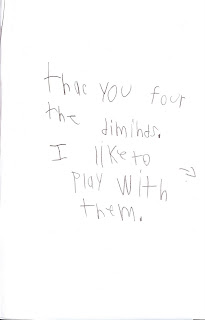 thac you four
the dimihds.
I like to
play with
them.